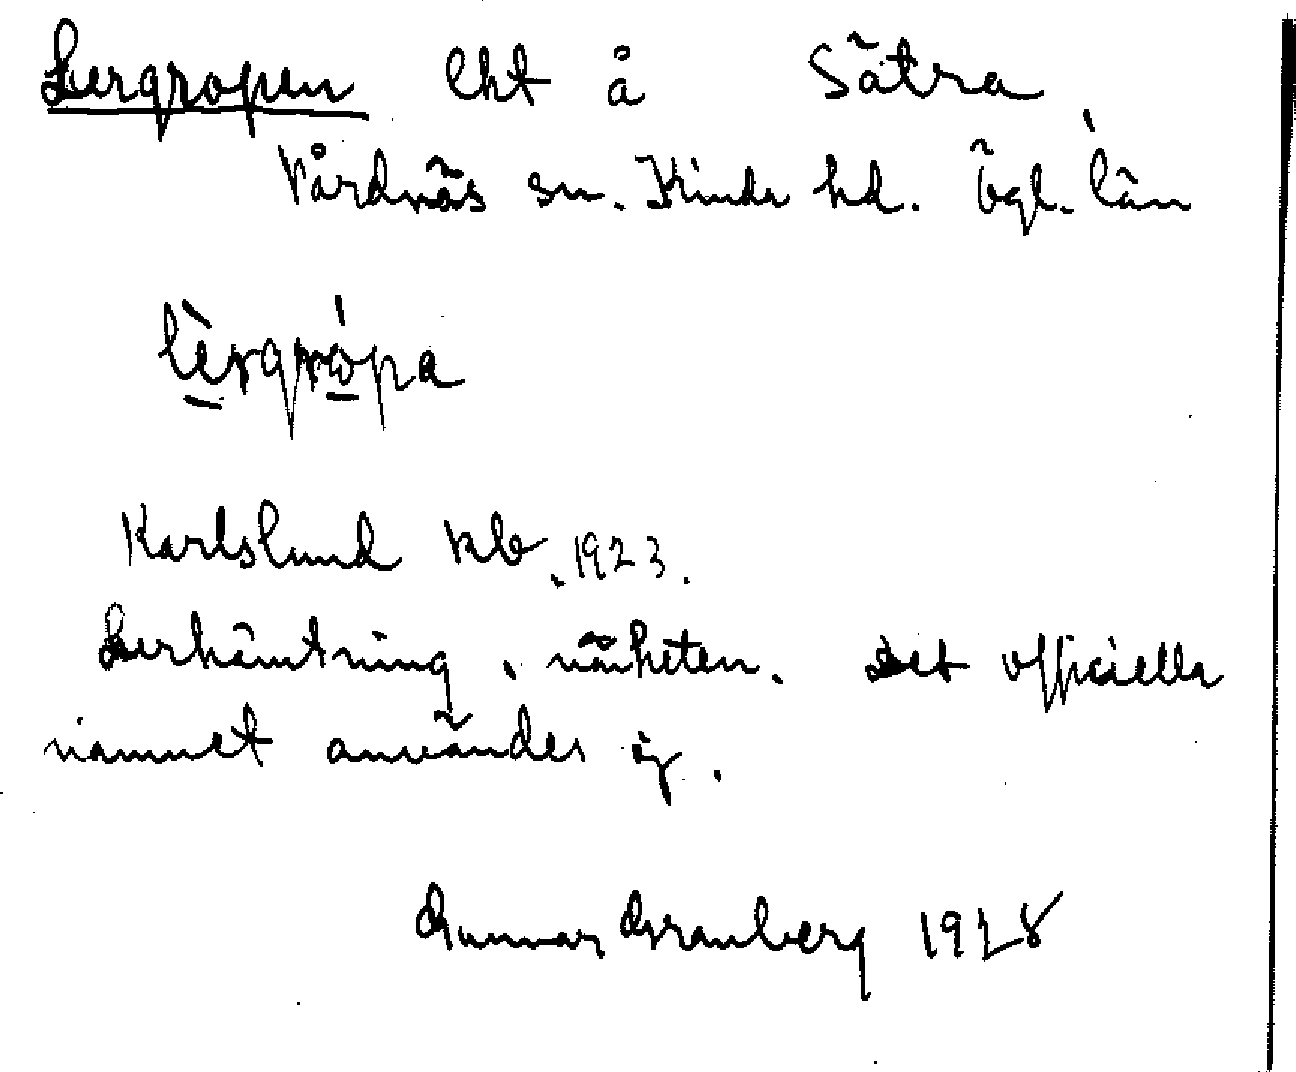 Lergropen lht å Sätra
Vårdnäs sn. Kinda hd. Ögl. län
lèrgrópa
Karlslund kb. 1923.
Lerhämtning i närheten. Det officiella
namnet användes ej.
Gunnar Granberg 1928